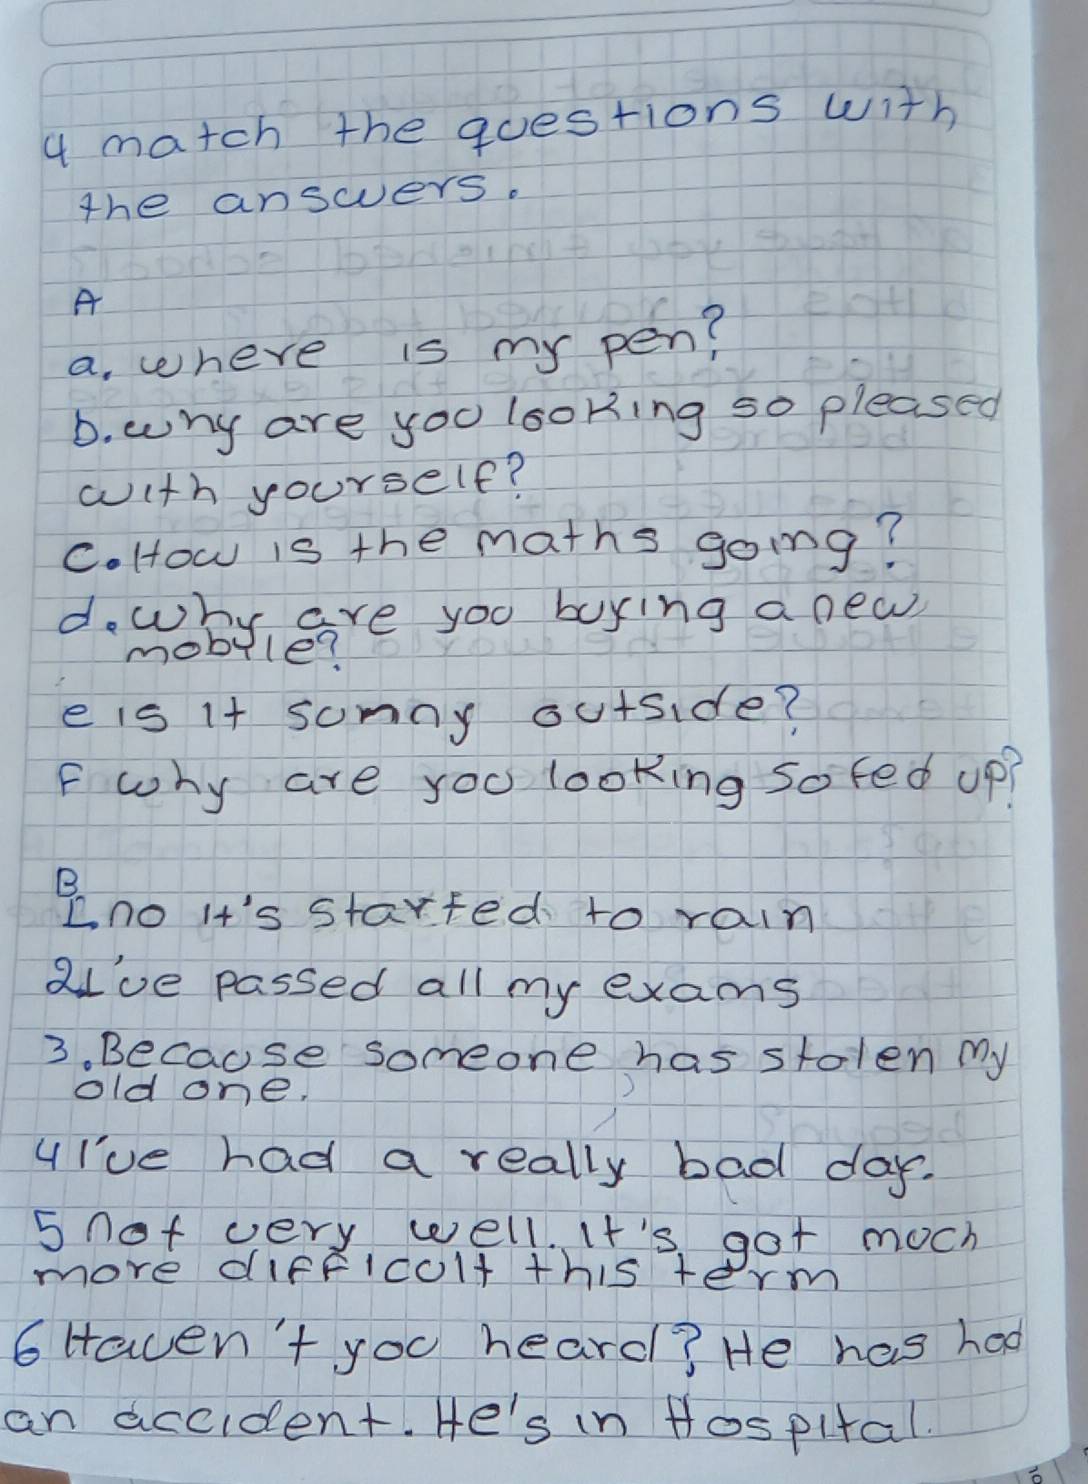 4 match the questions with
the answers.
A
a. where is my pen?
b. why are you looking so pleased
with yourself?
c. How is the maths going?
d. why are you buying a new
mobyle?
e is it sunny outside?
F why are you looking so fed up?
B
1. no it's started to rain
2 I've passed all my exams
3. Because someone has stolen my
old one.
4 I've had a really bad day.
5 not very well. It's got much
more difficult this term
6 Haven't you heard? He has had
an accident. He's in Hospital.